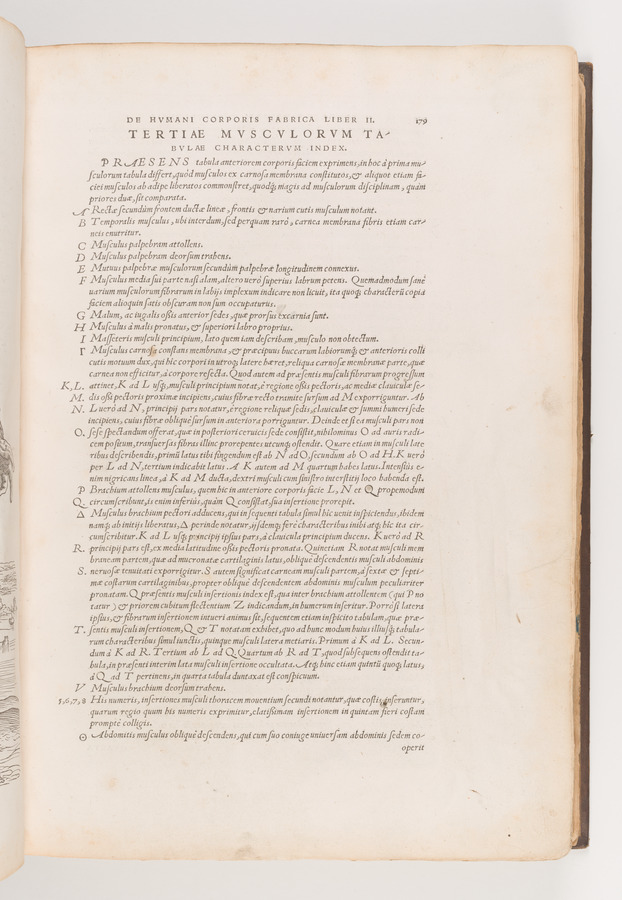 DE HVMANI CORPORIS FABRICA LIBER II. 179
TERTIAE MVSCVLORVM TA-
BVLAE CHARACTERVM INDEX.
PRAESENS tabula anteriorem corporis faciem exprimens, in hoc à prima mu-
sculorum tabula differt, quòd musculos ex carnosa membrana constitutos, & aliquot etiam fa-
ciei musculos ab adipe liberatos commonstret, quodq; magis ad musculorum disciplinam, quàm
priores duæ, sit comparata.
A Rectæ secundùm frontem ductæ lineæ, frontis & narium cutis musculum notant.
B Temporalis musculus, ubi interdum, sed perquam rarò, carneæ membranæ fibris etiam car-
neis enutritur.
C Musculus palpebram attollens.
D Musculus palpebram deorsum trahens.
E Mutuus palpebræ musculorum secundùm palpebræ longitudinem connexus.
F Musculus media sui parte nasi alam, altero uerò superius labrum petens. Quemadmodum sanè
uarium musculorum fibrarum in labijs implexum indicare non licuit, ita quoq; characterũ copia
faciem alioquin satis obscuram non sum occupaturus.
G Malum, ac iugalis ossis anterior sedes, quæ prorsus excarnia sunt.
H Musculus à malis pronatus, & superiori labro proprius.
I Masseteris musculi principium, lato quem iam describam, musculo non obtectum.
Γ Musculus carnosa constans membrana, & præcipuus buccarum labiorumq; & anterioris colli
cutis motuum dux, qui hic corpori in utroq; latere hæret, reliqua carnosæ membranæ parte, quæ
carnea non efficitur, à corpore resecta. Quod autem ad præsentis musculi fibrarum progressum
K, L. attinet, K ad L usq;, musculi principium notat, è regione ossis pectoris, ac mediæ clauiculæ se-
M. dis ossi pectoris proximæ incipiens, cuius fibræ recto tramite sursum ad M exporriguntur. Ab
N. L uerò ad N, principij pars notatur, è regione reliquæ sedis, clauiculæ & summi humeri sede
incipiens, cuius fibræ obliquè sursum in anteriora porriguntur. Deinde etsi ea musculi pars non
O. sese spectandum offerat, quæ in posteriori ceruicis sede consistit, nihilominus O ad auris radi-
cem positum, transuersas fibras illinc prorepentes utcunq; ostendit. Quare etiam in musculi late
ribus describendis, primũ latus tibi fingendum est ab N ad O, secundum ab O ad H. K uerò
per L ad N, tertium indicabit latus. A K autem ad M quartum habes latus. Intensius e-
nim nigricans linea, à K ad M ducta, dextri musculi cum sinistro interstitij loco habenda est.
P Brachium attollens musculus, quem hic in anteriore corporis facie L, N et Q propemodum
Q circumscribunt, is enim inferiùs, quàm Q consistat, sua insertione prorepit.
Δ Musculus brachium pectori adducens, qui in sequenti tabula simul hic uenit inspiciendus, ibidem
namq; ab initijs liberatus, Δ perinde notatur, ijsdemq; ferè characteribus inibi atq; hic ita cir-
cumscribitur. K ad L usq; principij ipsius pars, à clauicula principium ducens. K uerò ad R
R. principij pars est, ex media latitudine ossis pectoris pronata. Quinetiam R notat musculi mem
braneam partem, quæ ad mucronatæ cartilaginis latus, obliquè descendentis musculi abdominis
S. neruosæ tenuitati exporrigitur. S autem significat carneam musculi partem, à sextæ & septi-
mæ costarum cartilaginibus, propter obliquè descendentem abdominis musculum peculiariter
pronatam. Q præsentis musculi insertionis index est, qua inter brachium attollentem (qui P no
tatur) & priorem cubitum flectentium Z indicandum, in humerum inseritur. Porrò si latera
ipsius, & fibrarum insertionem intueri animus sit, sequentem etiam inspicito tabulam, quæ præ-
T. sentis musculi insertionem, Q & T notatam exhibet, quo ad hunc modum huius illiusq; tabula-
rum characteribus simul iunctis, quinque musculi latera metiaris. Primum à K ad L. Secun-
dum à K ad R. Tertium ab L ad Q. Quartum ab R ad T, quod subsequens ostendit ta-
bula, in præsenti interim lata musculi insertione occultata. Atq; hinc etiam quintũ quoq; latus,
à Q ad T pertinens, in quarta tabula duntaxat est conspicuum.
V Musculus brachium deorsum trahens.
5, 6, 7, 8 His numeris, insertiones musculi thoracem mouentium secundi notantur, quæ costis inseruntur,
quarum regio quum his numeris exprimitur, elatissimam insertionem in quintam fieri costam
promptè colligis.
Θ Abdominis musculus obliquè descendens, qui cum suo coniuge uniuersam abdominis sedem co-
operit